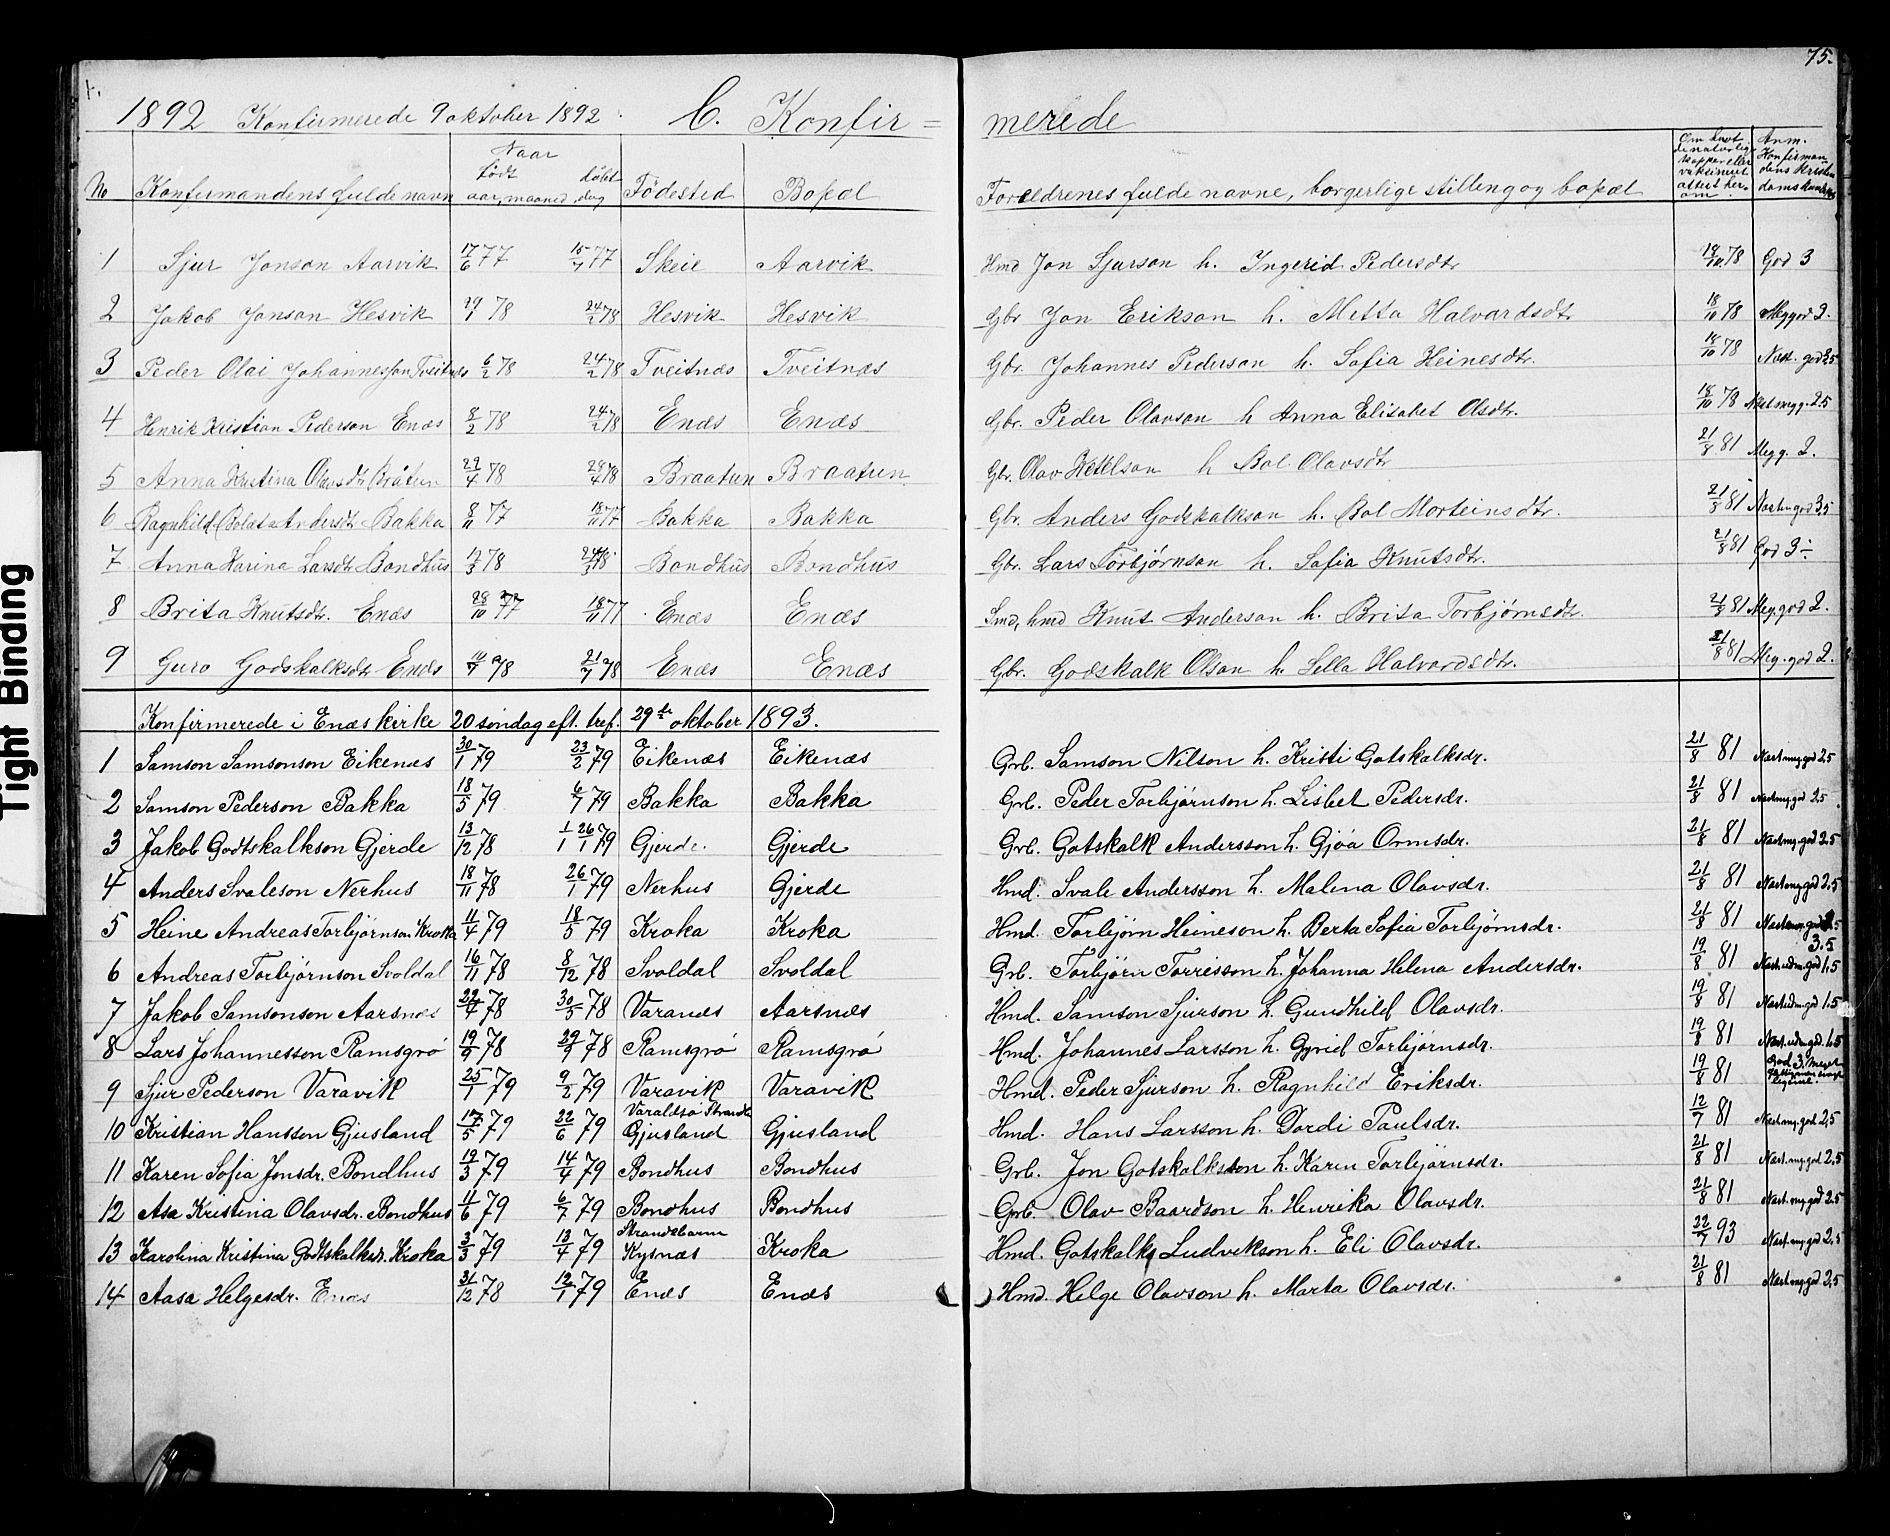 75.
1892 Konfirmerede 9 oktober 1892. C. Konfir = merede
No Konfirmandens fulde navn Naar født døbt aar, maaned, dag Födested Bopæl Forældrenes fulde navne, borgerlige stilling og bopæl Om havt de naturlige kopper eller vaksineret attest her- om. Anm. Konfirman dens kristen doms kundskab
1 Sjur Jonson Aarvik 17/6 77 15/7 77 Skeie Aarvik Hmd Jon Sjurson h. Ingerid Pedersdtr 78 God 3
2 Jakob Jonson Hesvik 29/1 78 24/2 78 Hesvik Hesvik Gbr Jon Erikson h. Metta Halvardsdtr 18/10 78 Meg god 2.
3 Peder Olai Johannesson Tveitnæs 6/2 78 24/2 78 Tveitnæs Tveitnæs Gbr. Johannes Pederson h. Sofia Heinesdtr. 18/10 78 Næst. god 2,5
4 Henrik Kristian Pederson Enæs 8/2 78 24/2 78 Enæs Enæs Gbr. Peder Olavson h Anna Elisabet Olsdtr. 18/10 78 Næst meg g. 2.5
5 Anna Kristina Olavsdtr Bråtun 29/4 78 28/4 78 Braatun Braatun Gbr. Olav Ketelson h Bol Olavsdtr 21/8 81 Meg g. 2.
6 Ragnhild Bolata Andersdtr Bakka 8/11 77 18/11 77 Bakka Bakka Gbr. Anders Godskalkson h. Bol Morteinsdtr. 21/8 81 god 3,5
7 Anna Karina Larsdtr Bondhus 78 Bondhus Bondhus Gbr. Lars Torbjørnson h. Sofia Knutsdtr. 21/8 81 God 3 ÷
8 Brita Knutsdtr. Enæs 28/10 77 18/11 77 Enæs Enæs Smd, hmd Knut Anderson h. Brita Torbjørnsdtr. 21/8 81 Meg. god 2.
9 Guro Godskalksdtr Enæs 14/7 78 21/7 78 Enæs Enæs Gbr. Godskalk Olson h. Sella Halvardsdtr. 21/8 81 Meg. god 2.
Konfirmerede i Enæs kirke 20 söndag eft. tref. 29de oktober 1893.
1 Samson Samsonson Eikenæs 30/1 79 23/2 79 Eikenæs Eikenæs Grb. Samson Nilson h. Kristi Gotskalksdr. 21/8 81 Næst meg god 2,5
2 Samson Pederson Bakka 18/5 79 6/7 79 Bakka Bakka Grb. Peder Torbjørnson h. Lisbet Pedersdr. 21/8 81 Næst meg god 2,5
3 Jakob Godtskalkson Gjerde 13/12 78 26/1 79 Gjerde. Gjerde Grb. Gotskalk Andersson h. Gjøa Ormsdr. 21/8 81 Næst my. god 2,5
4 Anders Svaleson Nerhus 18/11 78 26/1 79 Nerhus Gjerde Hmd. Svale Andersson h. Malena Olavsdr. 21/8 81 Næst my god 2,5
5 Heine Andreas Torbjörnson Kroka 11/4 79 18/5 79 Kroka Kroka Hmd. Torbjörn Heineson h. Berta Sofia Torbjörnsdr. 21/8 81 3,5
6 Andreas Torbjörnson Svoldal 16/11 78 8/12 78 Svoldal Svoldal Grb. Torbjörn Torrisson h. Johanna Helena Andersdr. 19/8 81 Næst. udm. god 1,5
7 Jakob Samsonson Aarsnæs 22/4 78 30/5 78 Varanes Aarsnæs Hmd. Samson Sjurson h. Gundhild Olavsdr. 19/8 81 Næst udm. god 1,5
8 Lars Johannesson Ramsgrö 19/9 78 29/9 78 Ramsgrö Ramsgrö Hmd. Johannes Larsson h. Gyrid Torbjörnsdr. 19/8 81 Næst. udm. god. 1,5
9 Sjur Pederson Varavik 25/1 79 9/2 79 Varavik Varavik Hmd. Peder Sjurson h. Ragnhild Eriksdr. 19/8 81 God 3. Meget
10 Kristian Hansson Gjusland 17/5 79 22/6 79 Varaldsö Strandb Gjusland Gjusland Hmd. Hans Larsson h. Dordi Paulsdr. 12/7 81 Næst my. god 2,5
11 Karen Sofia Jonsdr. Bondhus 19/3 79 14/4 79 Bondhus Bondhus Grb. Jon Gotskalkson h. Karen Torbjörnsdr. 21/8 81 Næst. my god 2,5
12 Asa Kristina Olavsdr. Bondhus 11/6 79 6/7 79 Bondhus Bondhus Grb. Olav Baardson h. Henrika Olavsdr. 21/8 81 Næst. my god 2,5
13 Karolina Kristina Godtskalksdr. Kroka 3/3 79 13/4 79 Strandebarm Kysnæs Kroka Hmd. Gotskalk Ludvikson h. Eli Olavsdr. 22/7 93 Næst. my god 2,5
14 Aasa Helgesdr. Enæs 31/12 78 12/1 79 Enæs Enæs Hmd. Helge Olavson h. Marta Olavsdr. 21/8 81 Næst my god 2,5
Tight Binding